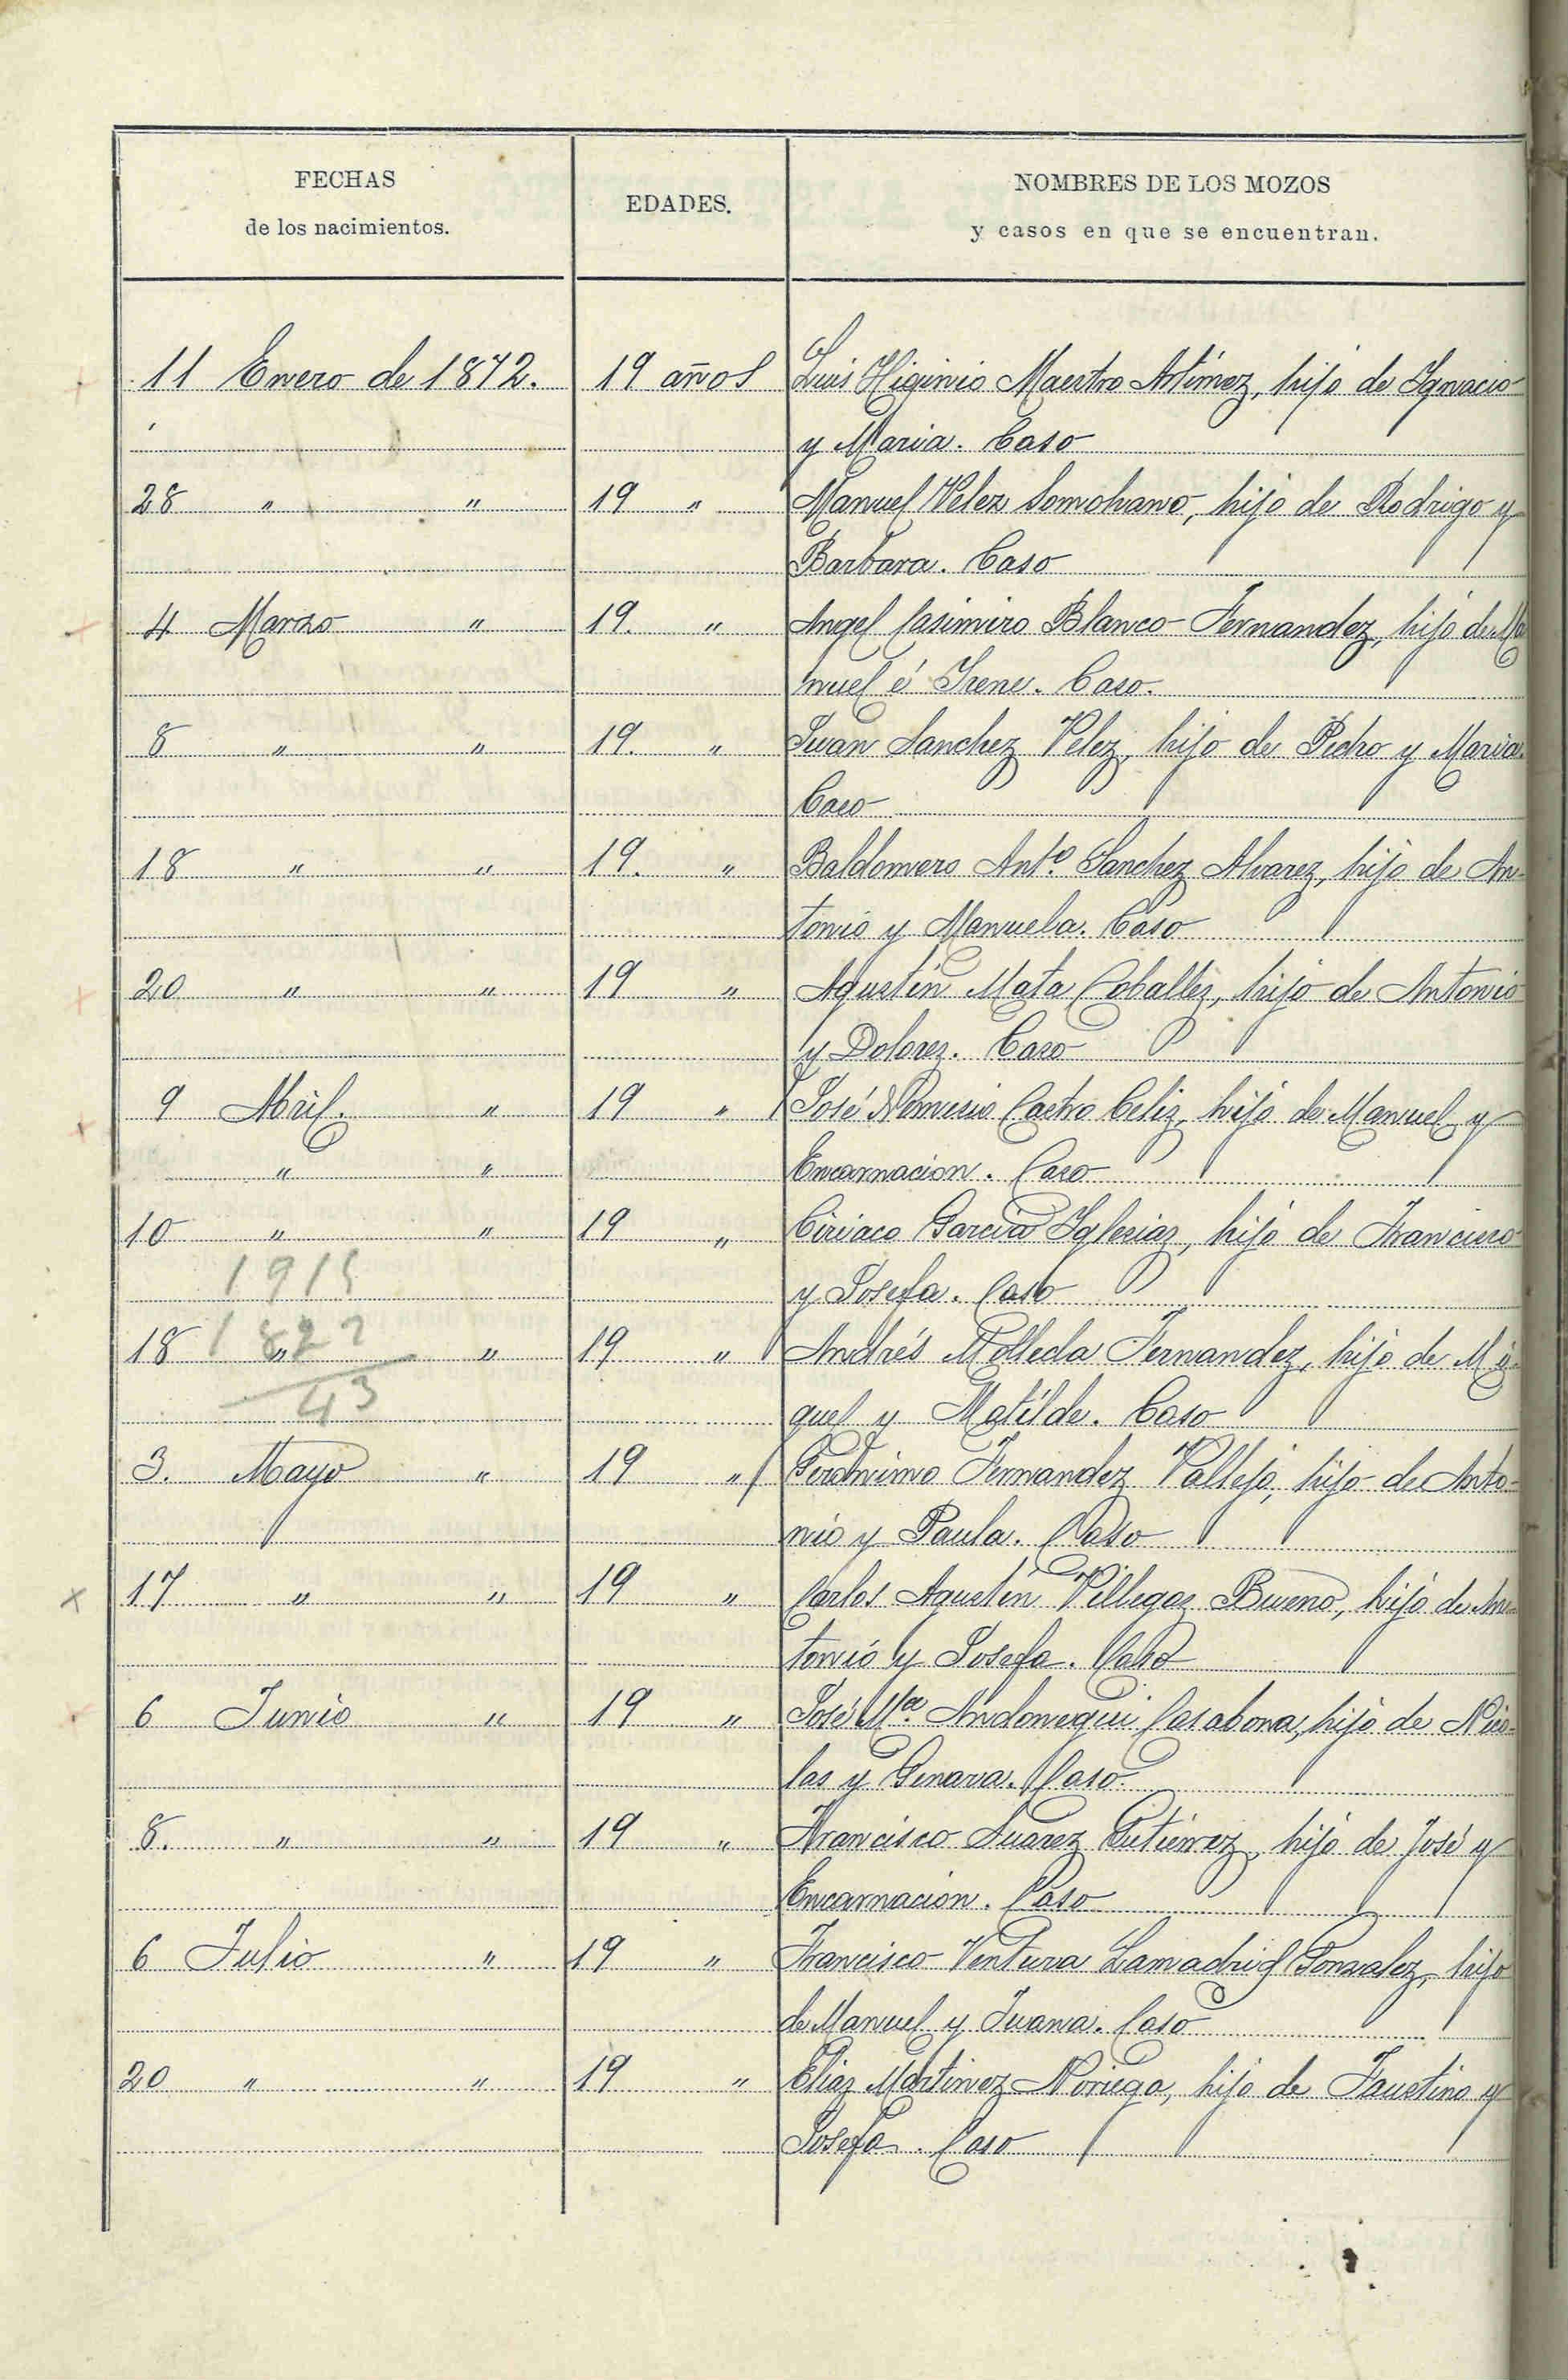 FECHAS
de los nacimientos.
EDADES.
NOMBRES DE LOS MOZOS
y casos en que se encuentran.
11 Enero de 1872. 19 años Luis Higinio Maestro Artímez, hijo de Ignacio
y Maria. Caso
28 " " 19 " Manuel Velez Somohano, hijo de Rodrigo y
Barbara. Caso
4 Marzo " 19. " Angel Casimiro Blanco Fernandez, hijo de Ma
nuel é Irene. Caso.
8 " " 19. " Juan Sanchez Velez, hijo de Pedro y Maria.
Caso
18 " " 19. " Baldomero Antº. Sanchez Alvarez, hijo de An-
tonio y Manuela. Caso
20 " " 19 " Agustín Mata Coballes, hijo de Antonio
y Dolorez. Caso
9 Abril. " 19 " José Nemesio Castro Celiz, hijo de Manuel y
" " Encarnacion. Caso
10 " " 19 " Ciriaco Garcia Iglesias, hijo de Francisco
1915
y Josefa. Caso
18 " " 19 " Andrés Molleda Fernandez, hijo de Mi-
1872
43
guel y Matilde. Caso
3. Mayo " 19 " Gerónimo Fernandez Vallejo, hijo de Anto-
nio y Paula. Caso
17 " " 19 " Carlos Agustín Villegas Bueno, hijo de An-
tonio y Josefa. Caso
6 Junio " 19 " José Mª Andonegui Casabona, hijo de Nico-
las y Genara. Caso.
8. " " 19 " Francisco Suarez Gutiérrez, hijo de José y
Encarnacion. Caso
6 Julio " 19 " Francisco Ventura Lamadrid Gonzalez, hijo
de Manuel y Juana. Caso
20 " " 19 " Eliaz Martinez Noriega, hijo de Faustino y
Josefa. Caso